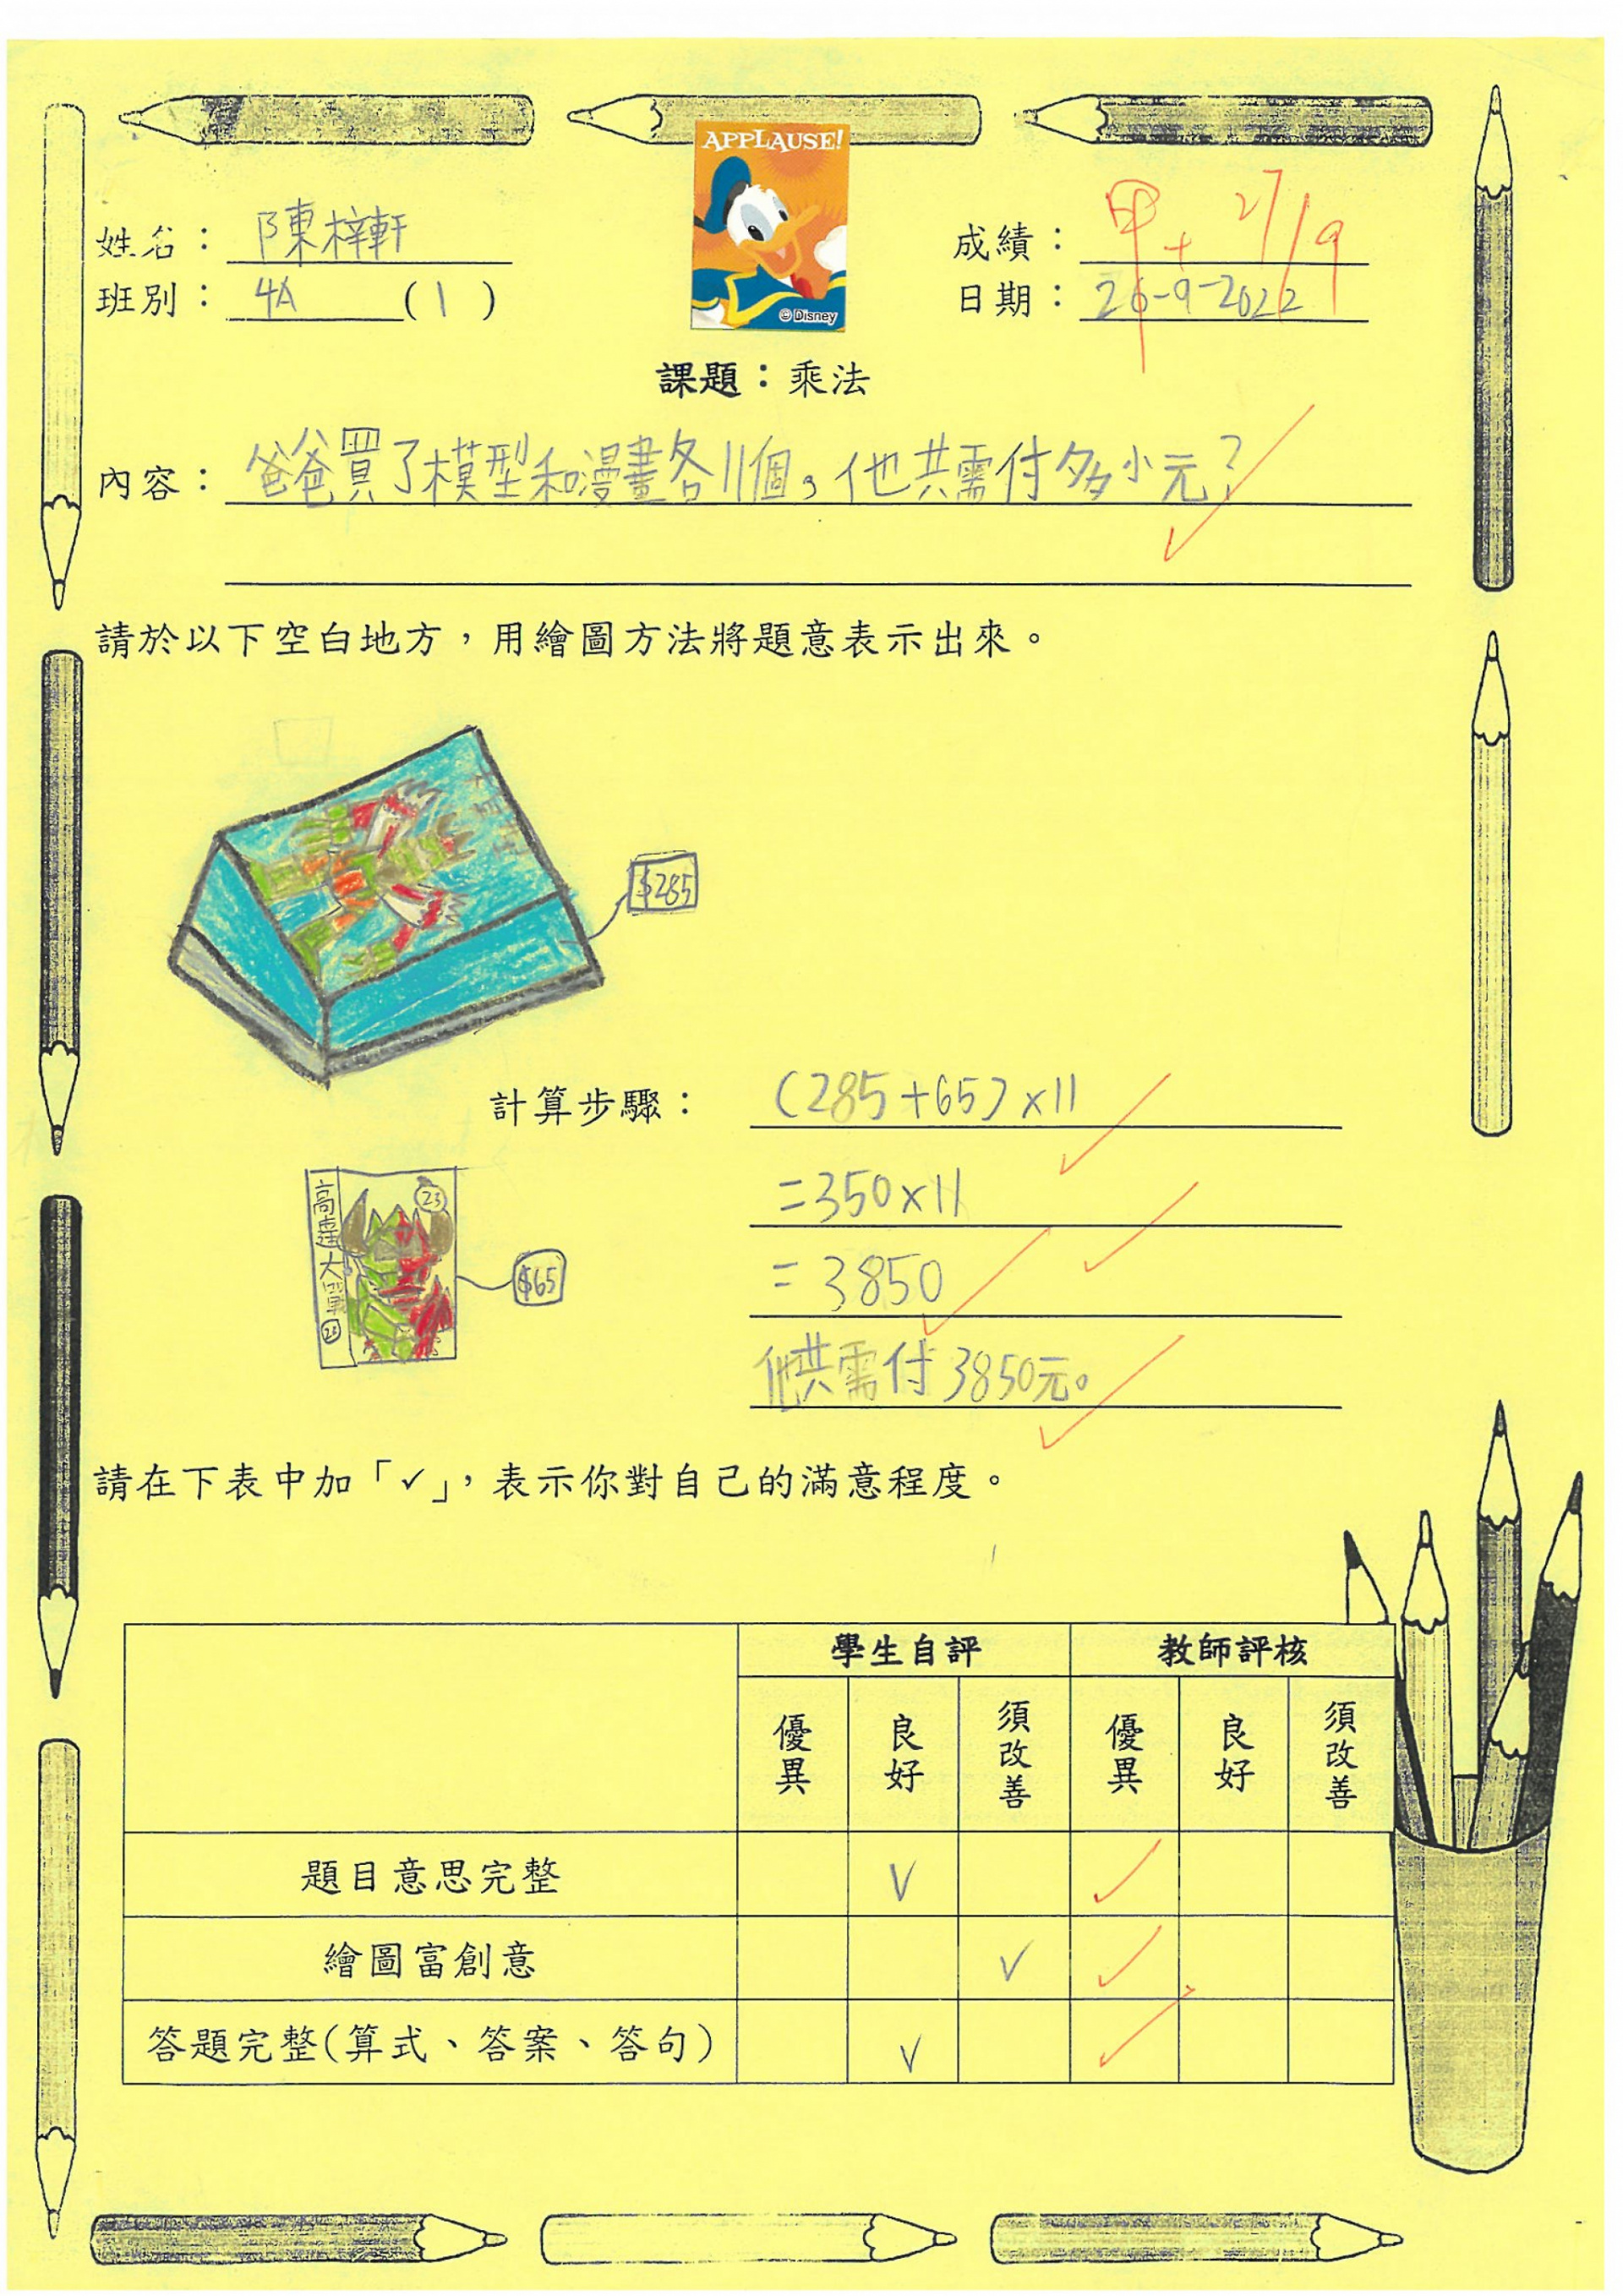 APPLAUSE!
© Disney
姓名： 陳梓軒
成績： 甲+ 27/9
班別： 4A (1)
日期： 26-9-2022
課題：乘法
內容： 爸爸買了模型和漫畫各11個，他共需付多小元？
請於以下空白地方，用繪圖方法將題意表示出來。
$285
計算步驟： (285+65)×11
=350×11
=3850
他共需付3850元。
高達大
23
$65
請在下表中加「✓」，表示你對自己的滿意程度。
學生自評 教師評核
優異 良好 須改善 優異 良好 須改善
題目意思完整 ✓ ✓
繪圖富創意 ✓ ✓
答題完整(算式、答案、答句) ✓ ✓